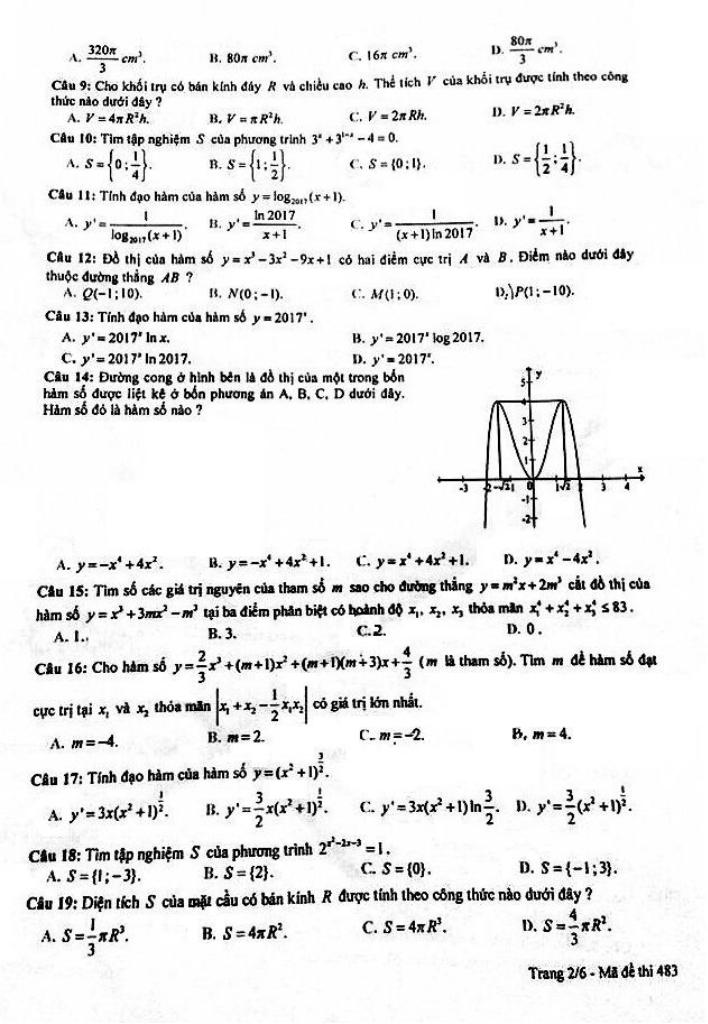 A. 320π/3 cm³. B. 80π cm³. C. 16π cm³. D. 80π/3 cm³.
Câu 9: Cho khối trụ có bán kính đáy R và chiều cao h. Thể tích V của khối trụ được tính theo công
thức nào dưới đây ?
A. V = 4πR²h. B. V = πR²h. C. V = 2πRh. D. V = 2πR²h.
Câu 10: Tìm tập nghiệm S của phương trình 3ˣ + 3¹⁻ˣ − 4 = 0.
A. S = {0; 1/4}. B. S = {1; 1/2}. C. S = {0; 1}. D. S = {1/2; 1/4}.
Câu 11: Tính đạo hàm của hàm số y = log₂₀₁₇(x + 1).
A. y' = 1/(log₂₀₁₇(x + 1)). B. y' = ln 2017/(x + 1). C. y' = 1/((x + 1) ln 2017). D. y' = 1/(x + 1).
Câu 12: Đồ thị của hàm số y = x³ − 3x² − 9x + 1 có hai điểm cực trị A và B. Điểm nào dưới đây
thuộc đường thẳng AB ?
A. Q(−1; 10). B. N(0; −1). C. M(1; 0). D. P(1; −10).
Câu 13: Tính đạo hàm của hàm số y = 2017ˣ.
A. y' = 2017ˣ ln x. B. y' = 2017ˣ log 2017.
C. y' = 2017ˣ ln 2017. D. y' = 2017ˣ.
Câu 14: Đường cong ở hình bên là đồ thị của một trong bốn
hàm số được liệt kê ở bốn phương án A, B, C, D dưới đây.
Hàm số đó là hàm số nào ?
5 y
4
3
2
1
x
-3 -2 -√2 -1 0 1 √2 2 3 4
-1
-2
A. y = −x⁴ + 4x². B. y = −x⁴ + 4x² + 1. C. y = x⁴ + 4x² + 1. D. y = x⁴ − 4x².
Câu 15: Tìm số các giá trị nguyên của tham số m sao cho đường thẳng y = m²x + 2m³ cắt đồ thị của
hàm số y = x³ + 3mx² − m³ tại ba điểm phân biệt có hoành độ x₁, x₂, x₃ thỏa mãn x₁⁴ + x₂⁴ + x₃⁴ ≤ 83.
A. 1. B. 3. C. 2. D. 0.
Câu 16: Cho hàm số y = 2/3 x³ + (m + 1)x² + (m + 1)(m + 3)x + 4/3 (m là tham số). Tìm m để hàm số đạt
cực trị tại x₁ và x₂ thỏa mãn |x₁ + x₂ − 1/2 x₁x₂| có giá trị lớn nhất.
A. m = −4. B. m = 2. C. m = −2. D. m = 4.
Câu 17: Tính đạo hàm của hàm số y = (x² + 1)^(3/2).
A. y' = 3x(x² + 1)^(1/2). B. y' = 3/2 x(x² + 1)^(1/2). C. y' = 3x(x² + 1) ln 3/2. D. y' = 3/2 (x² + 1)^(1/2).
Câu 18: Tìm tập nghiệm S của phương trình 2^(x²−2x−3) = 1.
A. S = {1; −3}. B. S = {2}. C. S = {0}. D. S = {−1; 3}.
Câu 19: Diện tích S của mặt cầu có bán kính R được tính theo công thức nào dưới đây ?
A. S = 1/3 πR³. B. S = 4πR². C. S = 4πR³. D. S = 4/3 πR².
Trang 2/6 - Mã đề thi 483